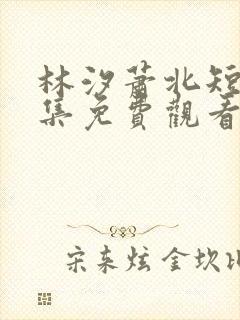 林汐蕭北短
集免費觀看
宋来炫金坎比